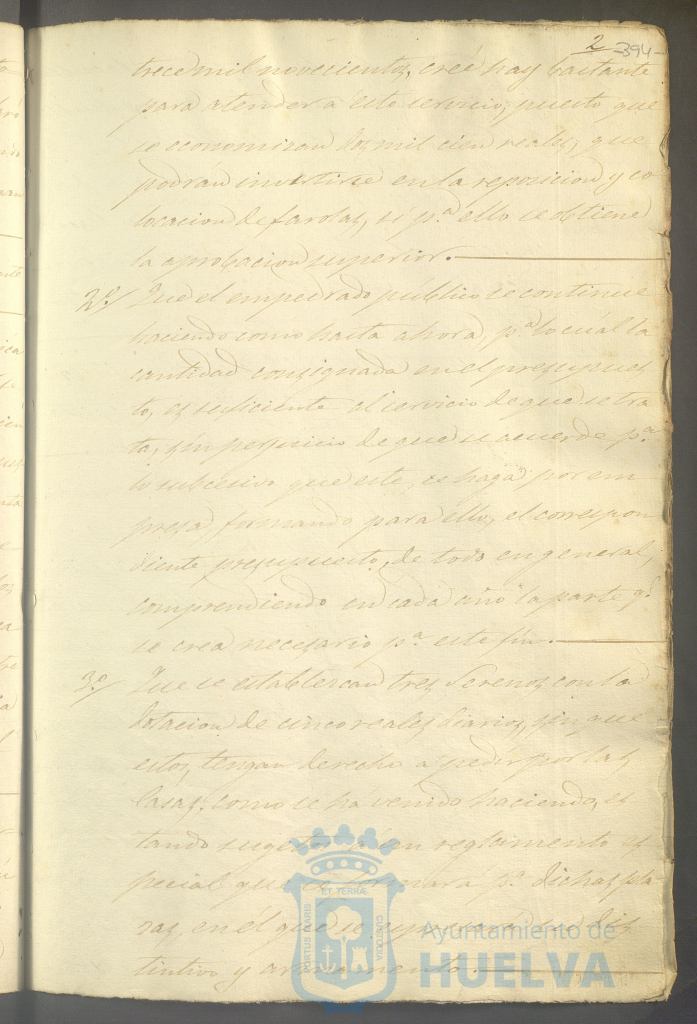 2 394
trece mil novecientos, creé hay bastante
para atender a este servicio, puesto que
se economizan dos mil cien reales, que
podrán invertirse en la reposicion y co
locacion de farolas, si p.ª ello se obtiene
la aprobacion superior.
2º/ Que el empedrado público se continue
haciendo como hasta ahora, p.ª lo cuál la
cantidad consignada en el presupues
to, es suficiente al servicio de que se tra
ta, sin perjuicio de que se acuerde p.ª
lo subcesivo que este, se haga por em
presa, formando para ello, el correspon
diente presupuesto, de todo en general,
comprendiendo en cada año la parte q.e
se crea necesario p.ª este fin.
3º/ Que se establezcan tres Serenos con la
dotacion de cinco reales diarios, sin que
estos, tengan derecho a pedir por las
casas, como se há venido haciendo, es
tando sugetos á un reglamento es
pecial que se formará p.ª dichas pla
zas, en el que se esprese su dis
tintivo y armamento.
PORTUS MARIS ET TERRAE CUSTODIA
Ayuntamiento de
HUELVA